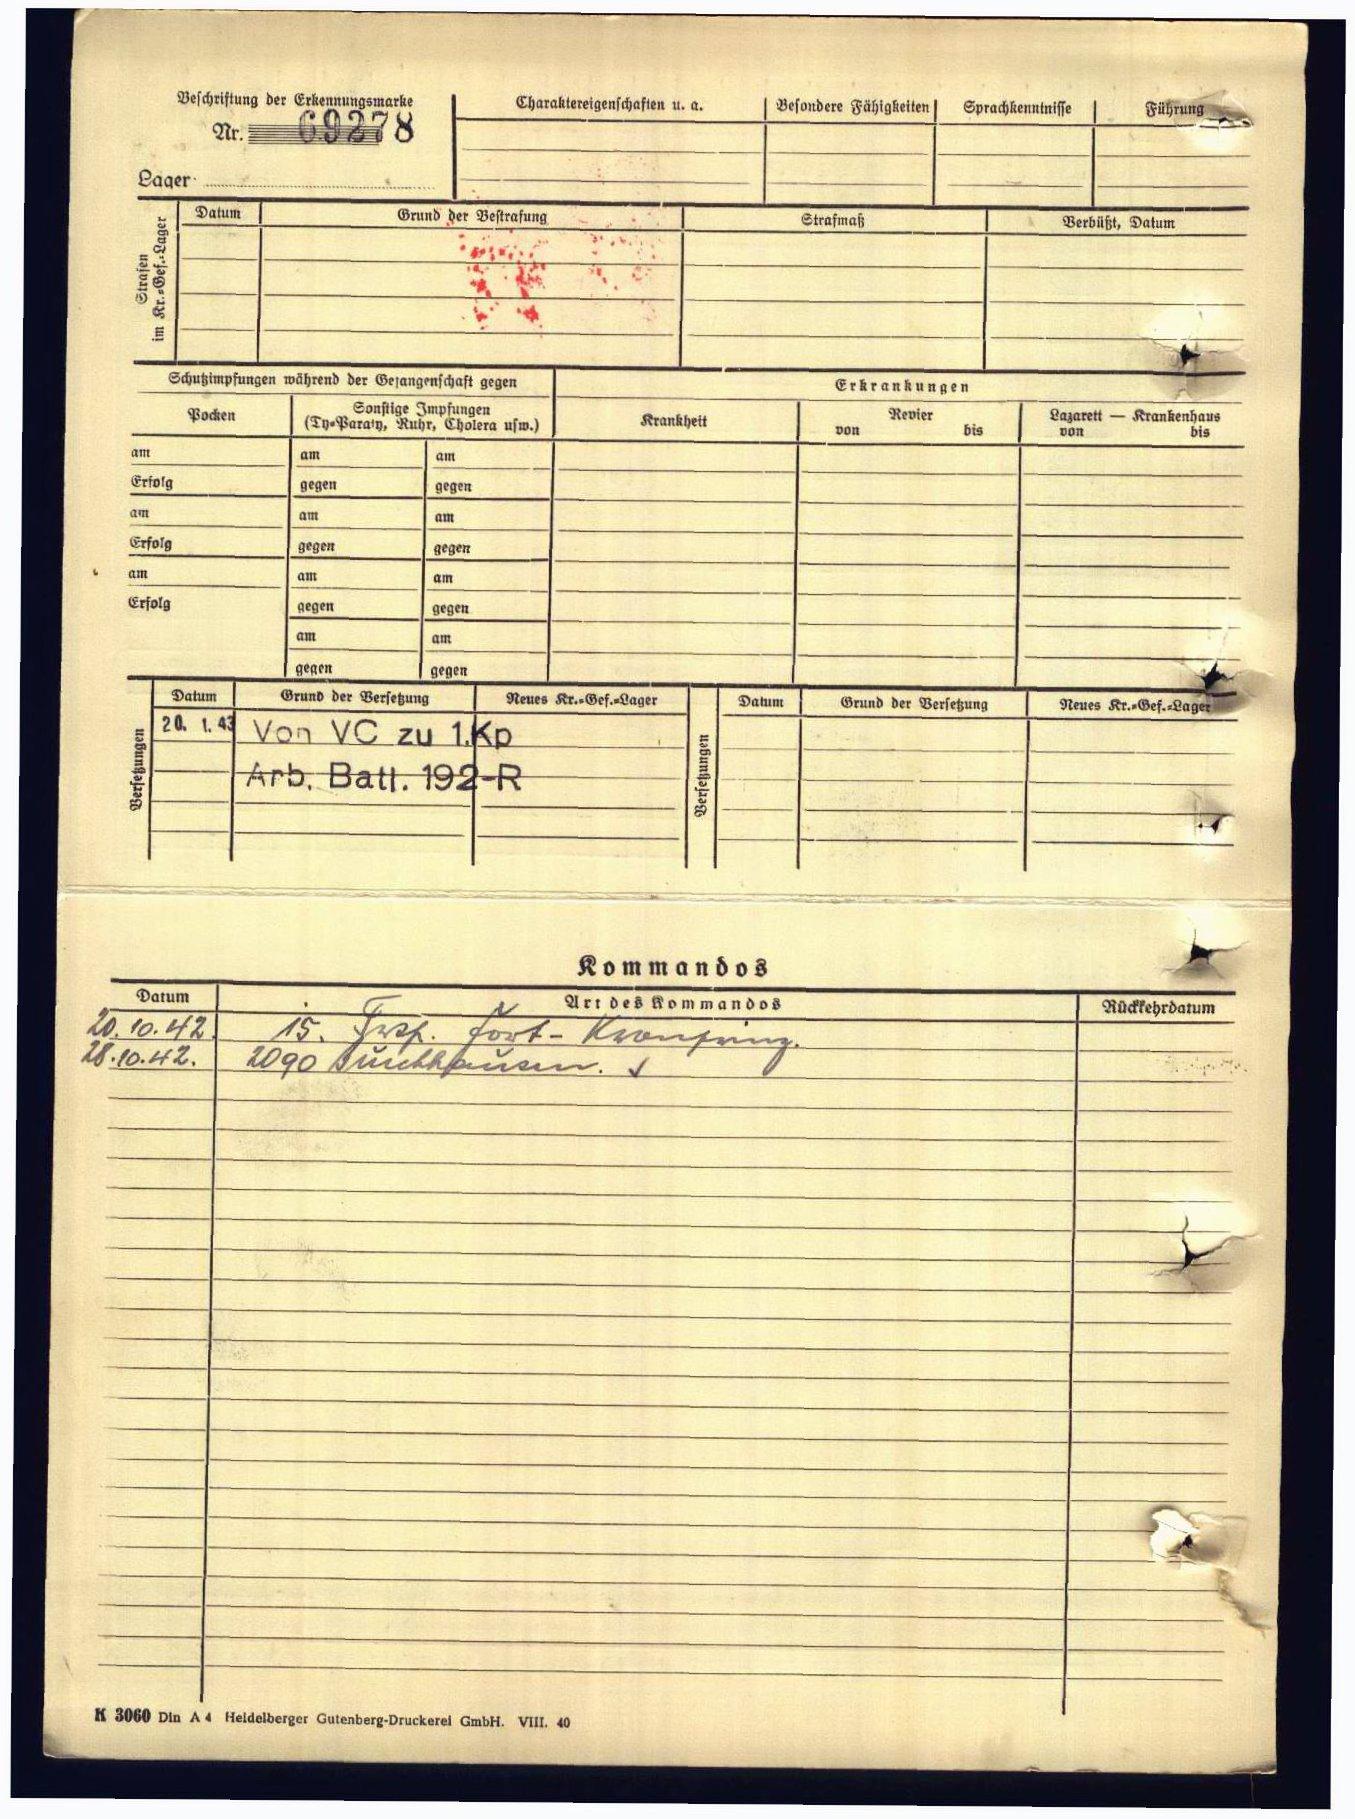 Beschriftung der Erkennungsmarke
Nr. 69278
Lager
Charaktereigenschaften u. a.
Besondere Fähigkeiten
Sprachkenntnisse
Führung
Strafen
im Kr.=Gef.=Lager
Datum
Grund der Bestrafung
Strafmaß
Verbüßt, Datum
Schutzimpfungen während der Gefangenschaft gegen
Pocken
Sonstige Impfungen
(Ty=Paraty, Ruhr, Cholera usw.)
am am am
Erfolg gegen gegen
am am am
Erfolg gegen gegen
am am am
Erfolg gegen gegen
am am
gegen gegen
Erkrankungen
Krankheit
Revier
von bis
Lazarett — Krankenhaus
von bis
Versetzungen
Datum Grund der Versetzung Neues Kr.=Gef.=Lager
20. 1. 43 Von VC zu 1.Kp
Arb. Batl. 192-R
Versetzungen
Datum Grund der Versetzung Neues Kr.=Gef.=Lager
Kommandos
Datum Art des Kommandos Rückkehrdatum
20.10.42. 15. Fort-Kronprinz.
28.10.42. 2090
K 3060 Din A 4 Heidelberger Gutenberg-Druckerei GmbH. VIII. 40